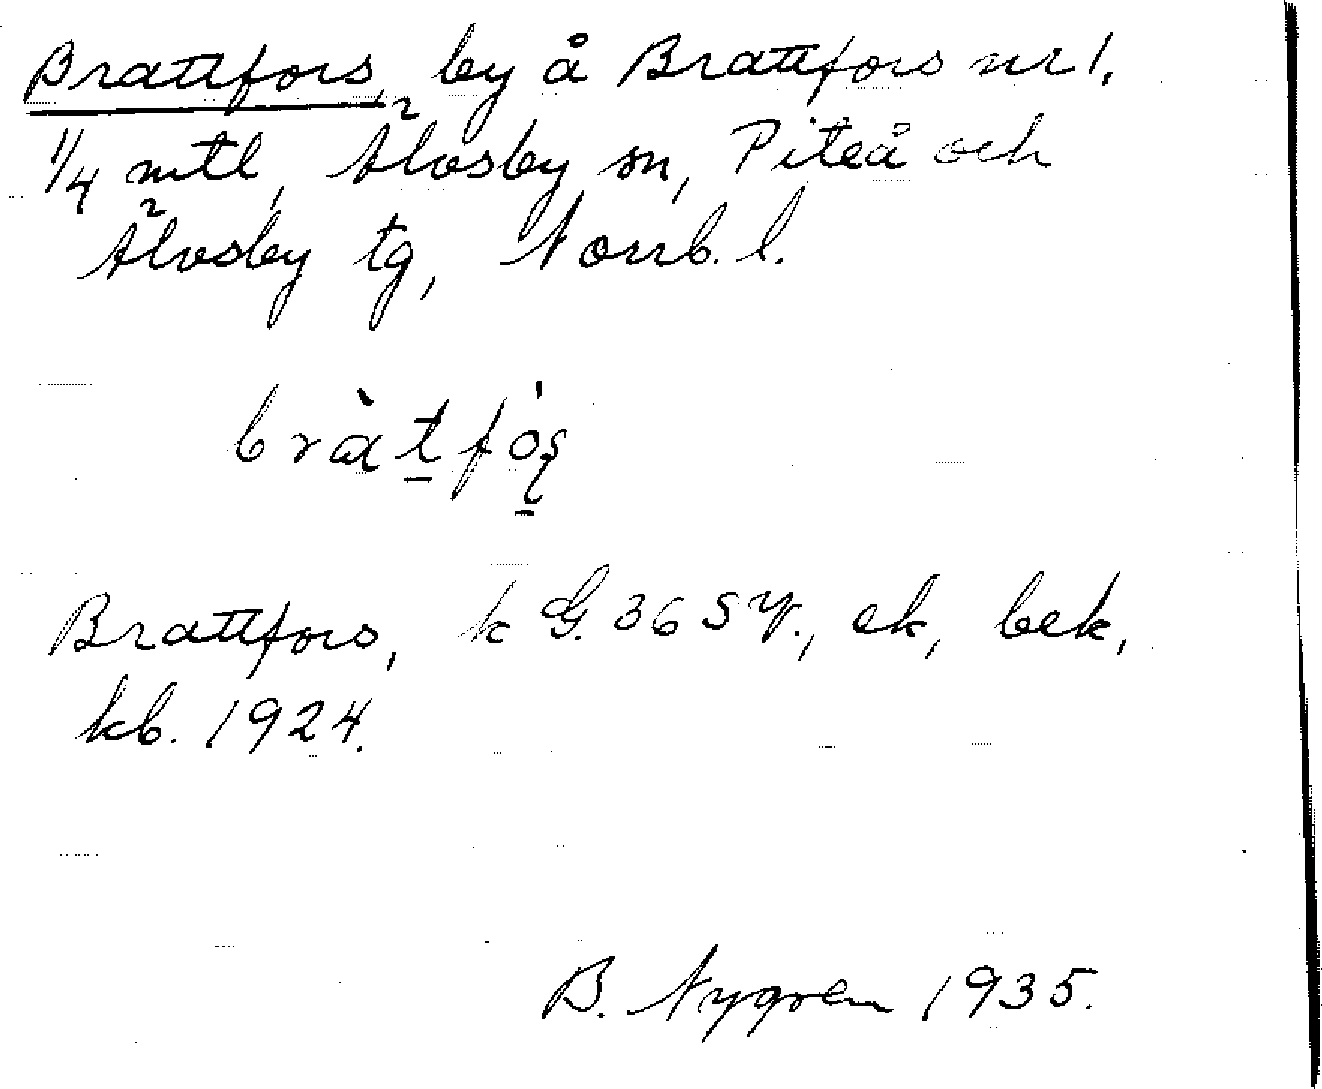 Brattfors, by å Brattfors nr 1.
1/4 mtl, Älvsby sn, Piteå och
Älvsby tg, Norrb. l.
Brattfors, k G. 36 SV., ek, bek,
kb. 1924.
B. Nygren 1935.